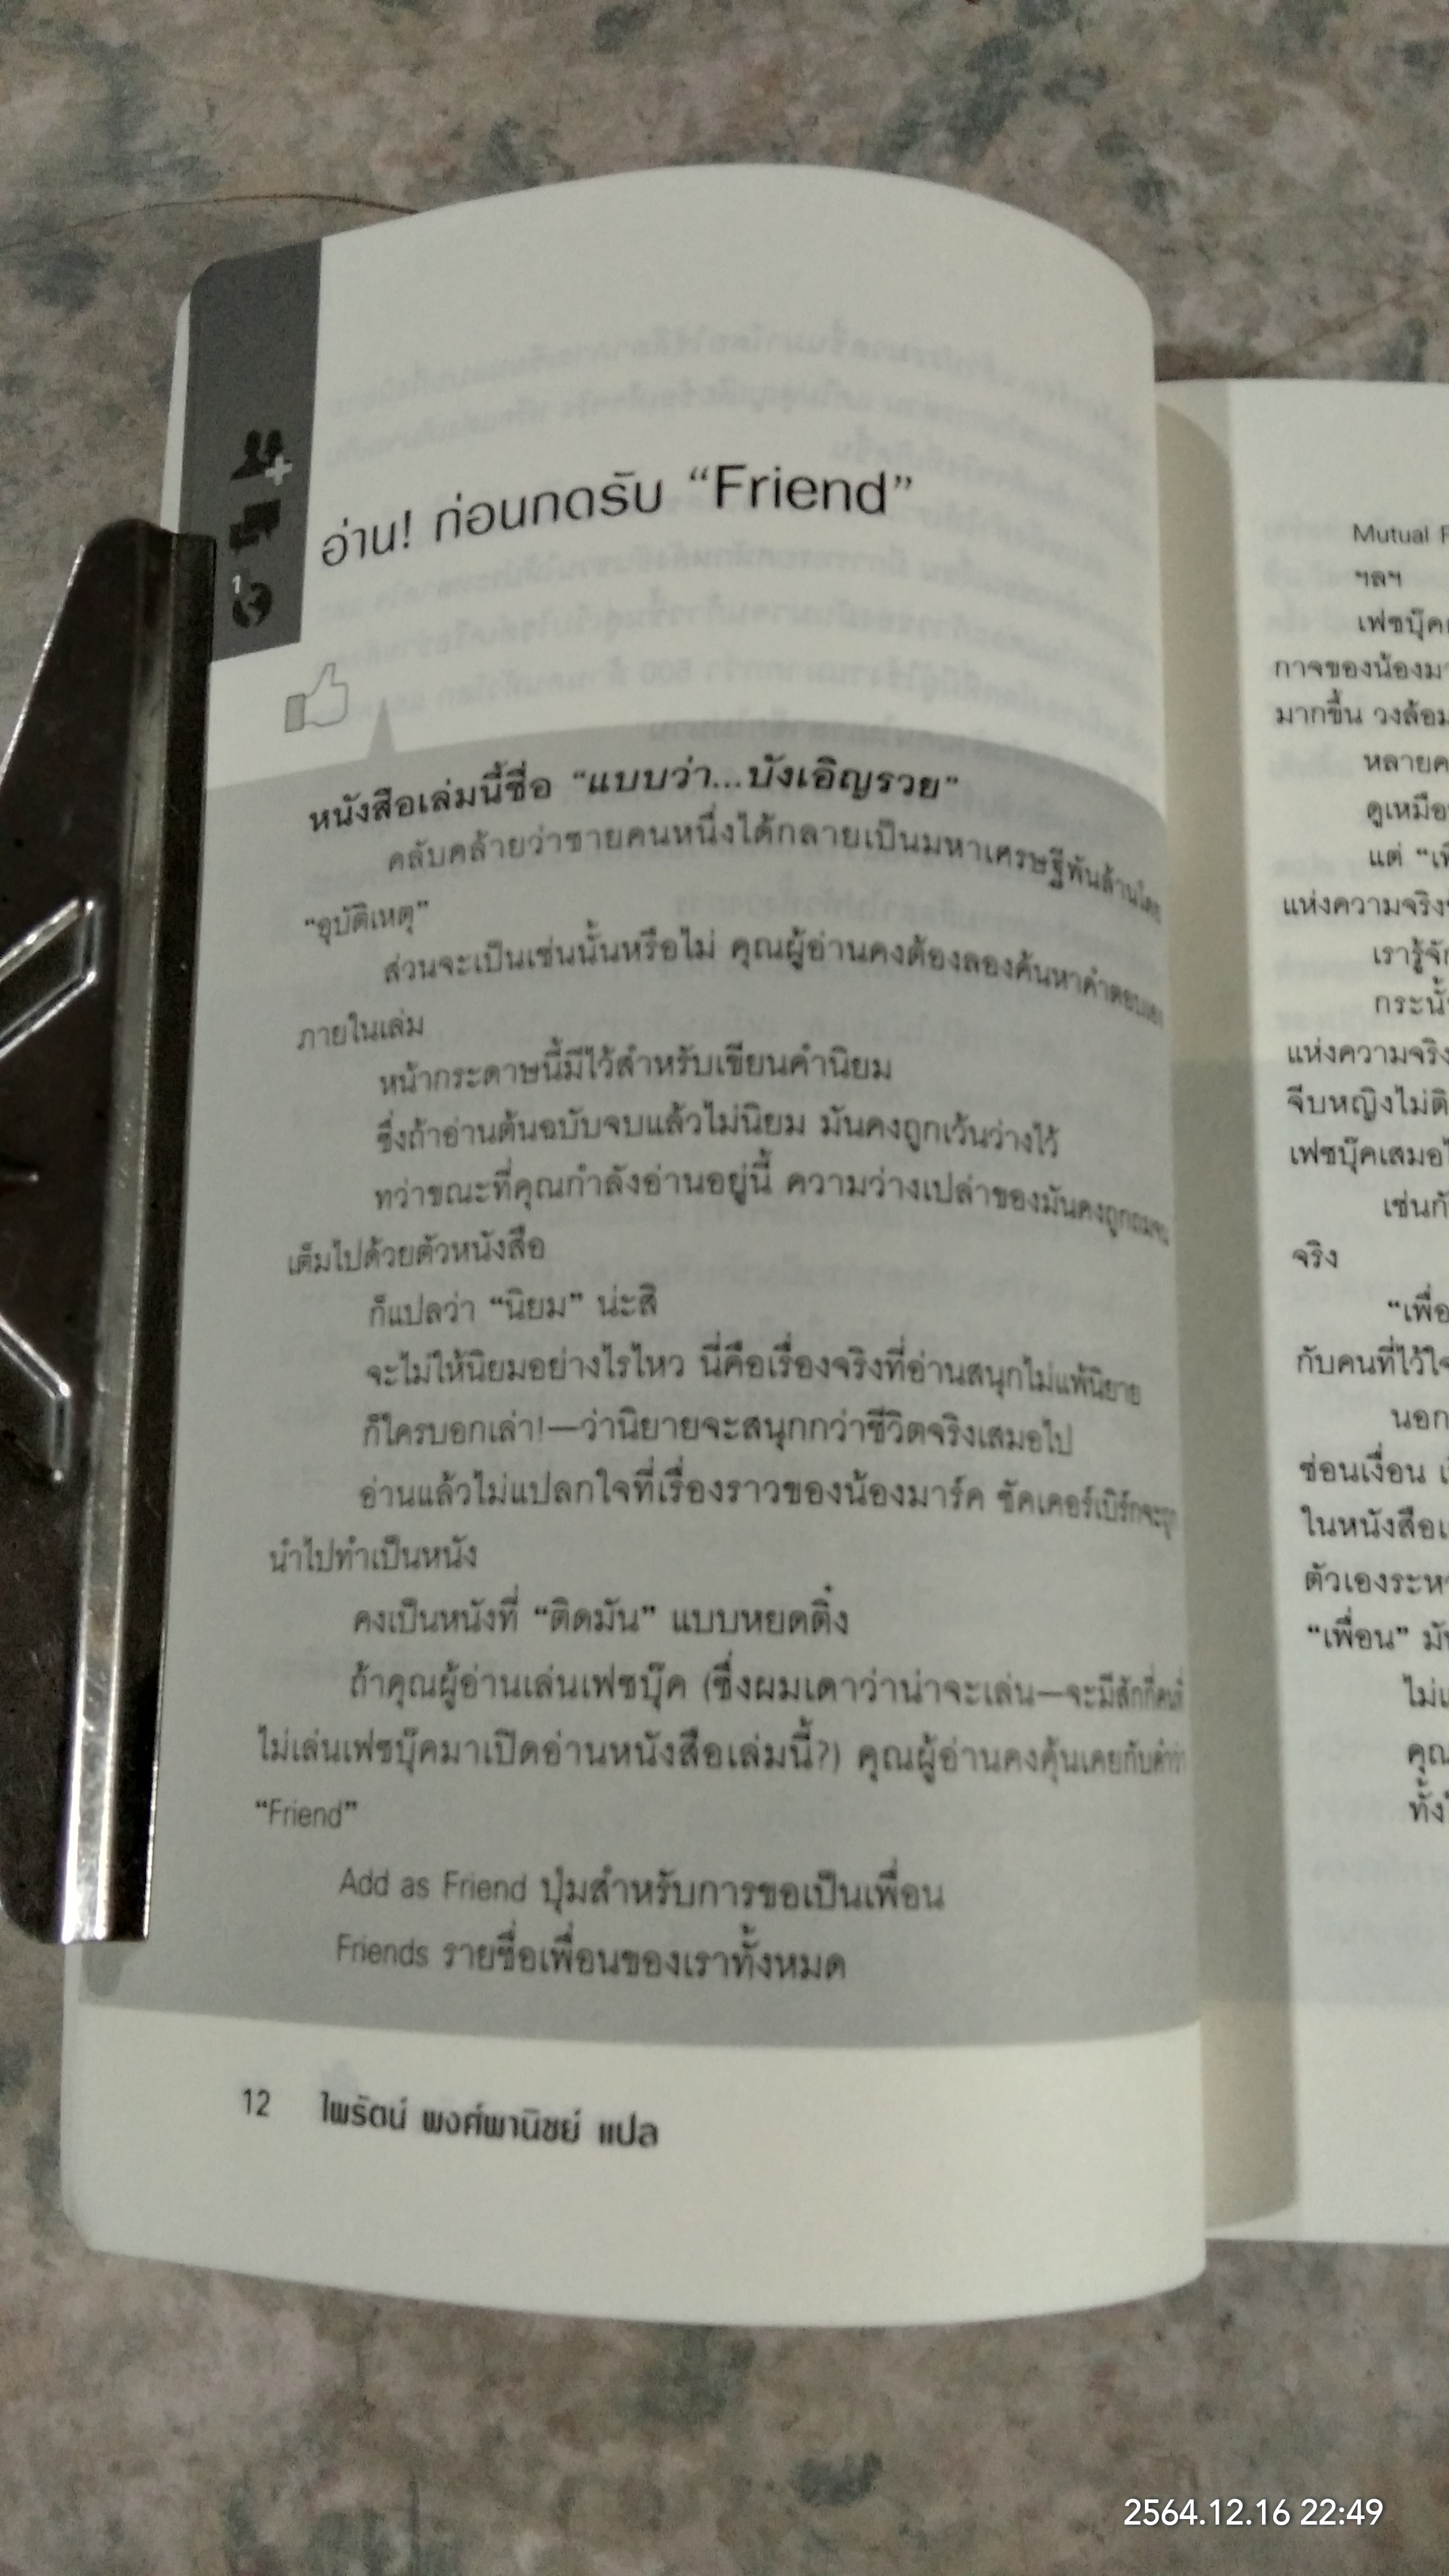 อ่าน! ก่อนกดรับ “Friend”
1
หนังสือเล่มนี้ชื่อ “แบบว่า...บังเอิญรวย”
คลับคล้ายว่าชายคนหนึ่งได้กลายเป็นมหาเศรษฐีพันล้านโดย
“อุบัติเหตุ”
ส่วนจะเป็นเช่นนั้นหรือไม่ คุณผู้อ่านคงต้องลองค้นหาคำตอบเอง
ภายในเล่ม
หน้ากระดาษนี้มีไว้สำหรับเขียนคำนิยม
ซึ่งถ้าอ่านต้นฉบับจบแล้วไม่นิยม มันคงถูกเว้นว่างไว้
ทว่าขณะที่คุณกำลังอ่านอยู่นี้ ความว่างเปล่าของมันคงถูกถมจน
เต็มไปด้วยตัวหนังสือ
ก็แปลว่า “นิยม” น่ะสิ
จะไม่ให้นิยมอย่างไรไหว นี่คือเรื่องจริงที่อ่านสนุกไม่แพ้นิยาย
ก็ใครบอกเล่า!—ว่านิยายจะสนุกกว่าชีวิตจริงเสมอไป
อ่านแล้วไม่แปลกใจที่เรื่องราวของน้องมาร์ค ซัคเคอร์เบิร์กจะถูก
นำไปทำเป็นหนัง
คงเป็นหนังที่ “ติดมัน” แบบหยดติ๋ง
ถ้าคุณผู้อ่านเล่นเฟซบุ๊ค (ซึ่งผมเดาว่าน่าจะเล่น—จะมีสักกี่คนที่
ไม่เล่นเฟซบุ๊คมาเปิดอ่านหนังสือเล่มนี้?) คุณผู้อ่านคงคุ้นเคยกับคำว่า
“Friend”
Add as Friend ปุ่มสำหรับการขอเป็นเพื่อน
Friends รายชื่อเพื่อนของเราทั้งหมด
12 ไพรัตน์ พงศ์พานิชย์ แปล
Mutual F
ฯลฯ
เฟซบุ๊ค
กาจของน้องมา
มากขึ้น วงล้อม
หลายค
ดูเหมือ
แต่ “เพื
แห่งความจริง
เรารู้จัก
กระนั้
แห่งความจริง
จีบหญิงไม่ติ
เฟซบุ๊คเสมอไ
เช่นกั
จริง
“เพื่อ
กับคนที่ไว้ใจ
นอก
ซ่อนเงื่อน เ
ในหนังสือเ
ตัวเองระหว
“เพื่อน” มั
ไม่เ
คุณ
ทั้งใ
2564.12.16 22:49